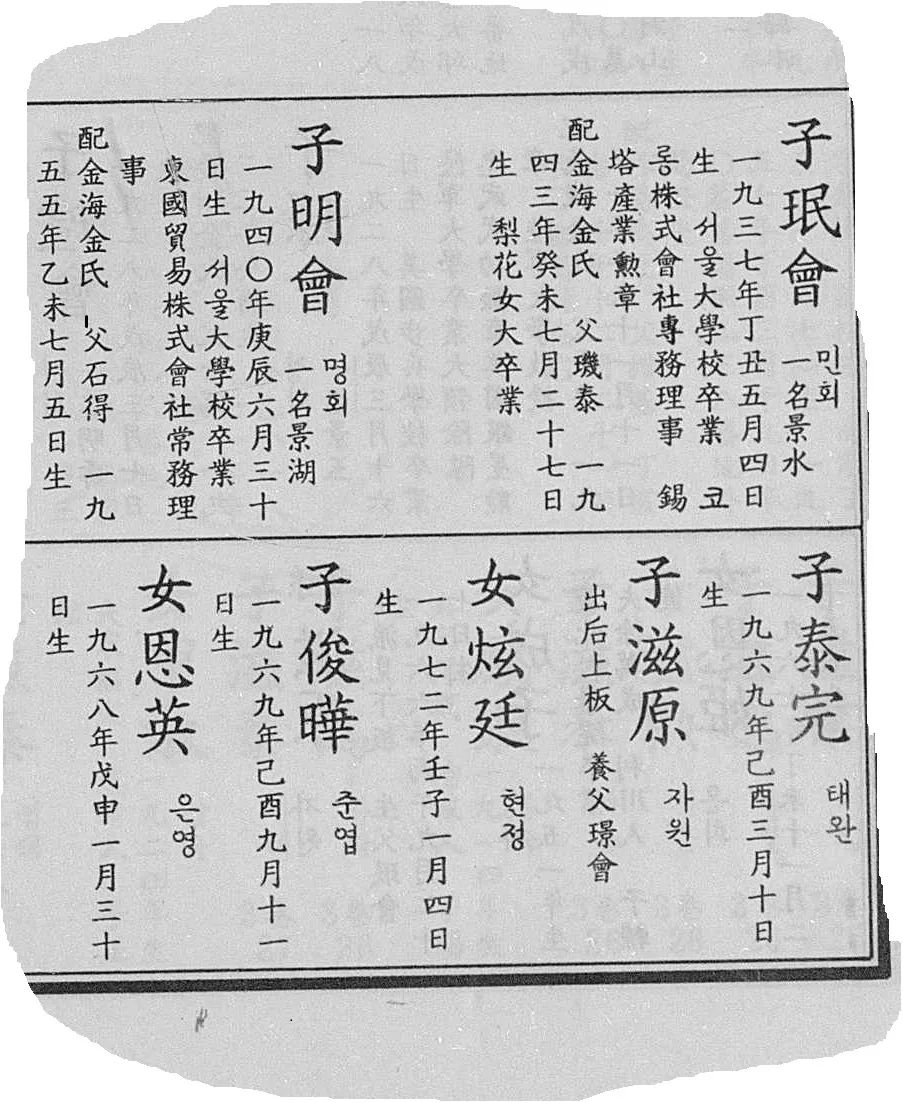 子珉會 민회
一名景水
一九三七年丁丑五月四日
生 서울大學校卒業 코
롱株式會社專務理事 錫
塔產業勲章
配金海金氏 父璣泰 一九
四三年癸未七月二十七日
生 梨花女大卒業
子明會 명회
一名景湖
一九四〇年庚辰六月三十
日生 서울大學校卒業
東國貿易株式會社常務理
事
配金海金氏 父石得 一九
五五年乙未七月五日生
子泰完 태완
一九六九年己酉三月十日
生
子滋原 자원
出后上板 養父璟會
女炫廷 현정
一九七二年壬子一月四日
生
子俊曄 준엽
一九六九年己酉九月十一
日生
女恩英 은영
一九六八年戊申一月三十
日生